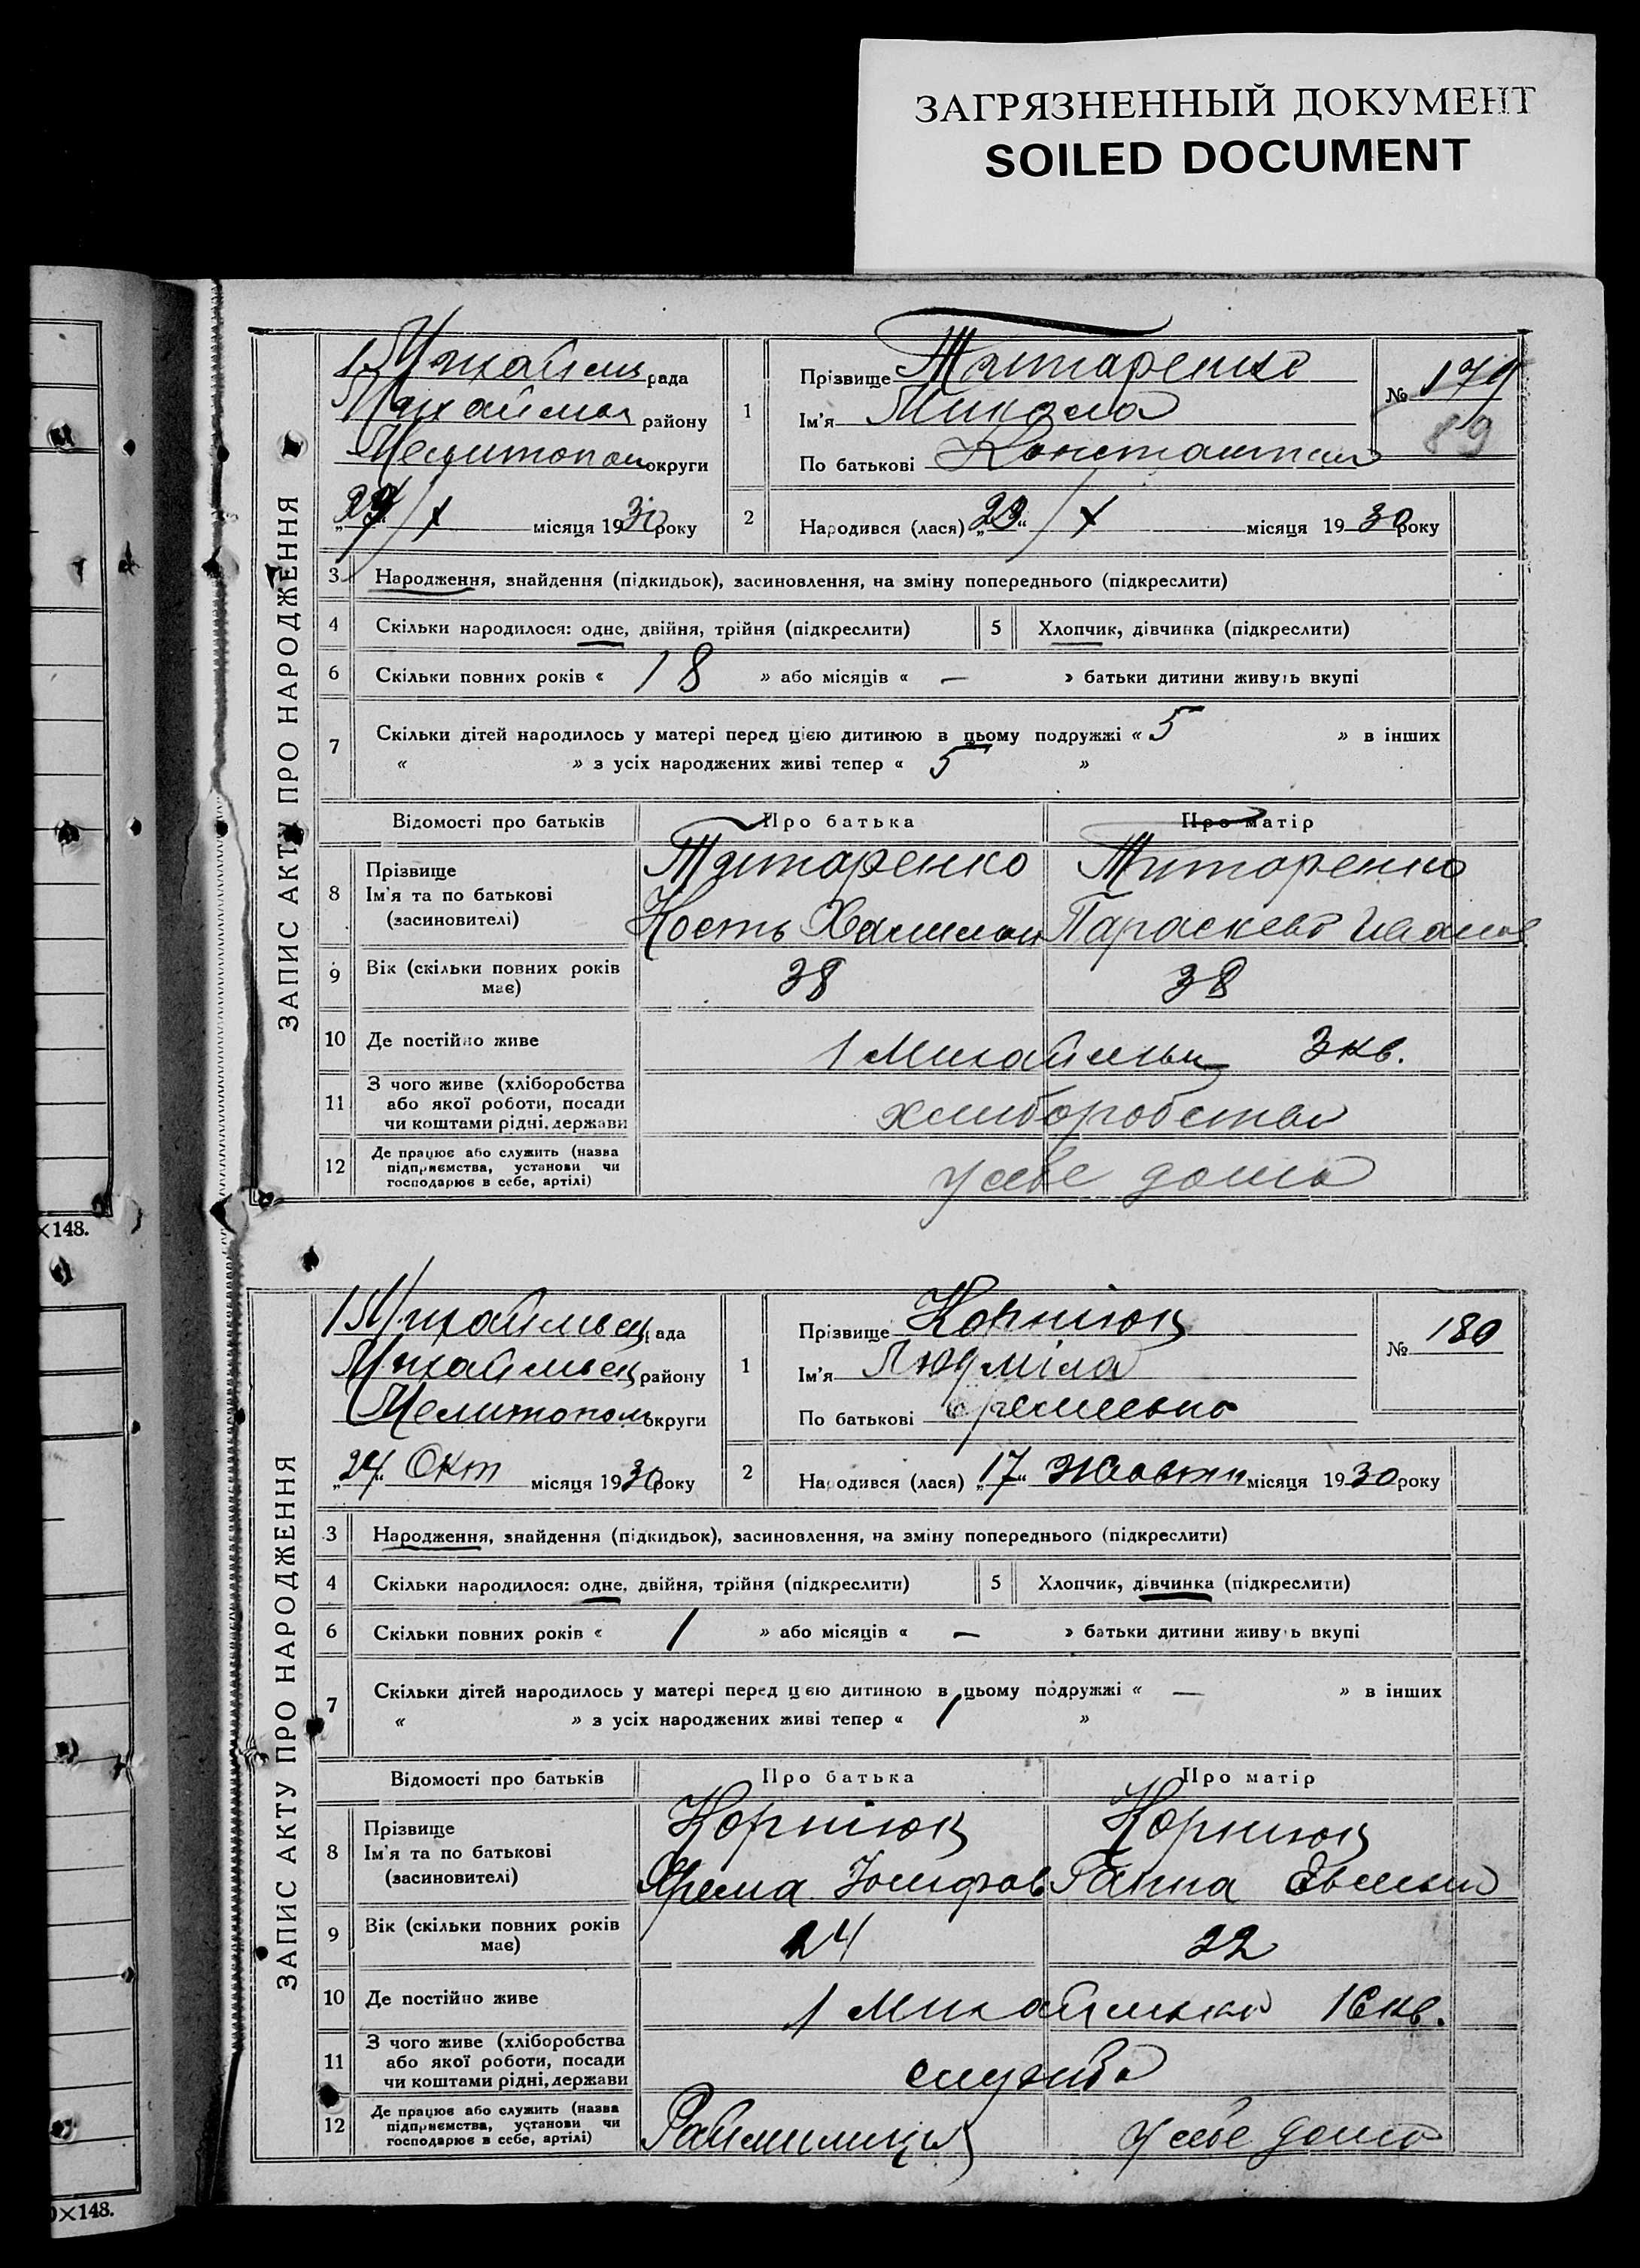 ЗАГРЯЗНЕННЫЙ ДОКУМЕНТ
SOILED DOCUMENT
×148.
0×148.
ЗАПИС АКТУ ПРО НАРОДЖЕННЯ
рада
району
Мелитопол округи
29/X місяця 1930 року
1 Прізвище Титаренко
Ім'я Микола
По батькові Константин
№ 179
89
2 Народився (лася) „23“ / X місяця 1930 року
3 Народження, знайдення (підкидьок), засиновлення, на зміну попереднього (підкреслити)
4 Скільки народилося: одне, двійня, трійня (підкреслити)
5 Хлопчик, дівчинка (підкреслити)
6 Скільки повних років « 18 » або місяців « — » батьки дитини живуть вкупі
7 Скільки дітей народилось у матері перед цією дитиною в цьому подружжі « 5 » в інших
« » з усіх народжених живі тепер « 5 »
Відомості про батьків Про батька Про матір
8 Прізвище Титаренко Титаренко
Ім'я та по батькові
(засиновителі) Кость Параскева Иванов
9 Вік (скільки повних років має) 38 38
10 Де постійно живе 1 Михайлівка 3 кв.
11 З чого живе (хліборобства або якої роботи, посади чи коштами рідні, держави хлиборобства
12 Де працює або служить (назва підприємства, установи чи господарює в себе, артілі) у себе дома
ЗАПИС АКТУ ПРО НАРОДЖЕННЯ
1 Михайлівец рада
Михайлівец району
Мелитопол округи
„24“ Окт місяця 1930 року
1 Прізвище Корніюц
Ім'я Людміла
По батькові
№ 180
2 Народився (лася) „17“ Жовтня місяця 1930 року
3 Народження, знайдення (підкидьок), засиновлення, на зміну попереднього (підкреслити)
4 Скільки народилося: одне, двійня, трійня (підкреслити)
5 Хлопчик, дівчинка (підкреслити)
6 Скільки повних років « 1 » або місяців « — » батьки дитини живуть вкупі
7 Скільки дітей народилось у матері перед цією дитиною в цьому подружжі « — » в інших
« » з усіх народжених живі тепер « 1 »
Відомості про батьків Про батька Про матір
8 Прізвище Корніюц Корніюц
Ім'я та по батькові
(засиновителі) Ярема Йосифов Ганна
9 Вік (скільки повних років має) 24 22
10 Де постійно живе 1 Михайлівка 16 кв.
11 З чого живе (хліборобства або якої роботи, посади чи коштами рідні, держави служба
12 Де працює або служить (назва підприємства, установи чи господарює в себе, артілі) Райміліція у себе дома